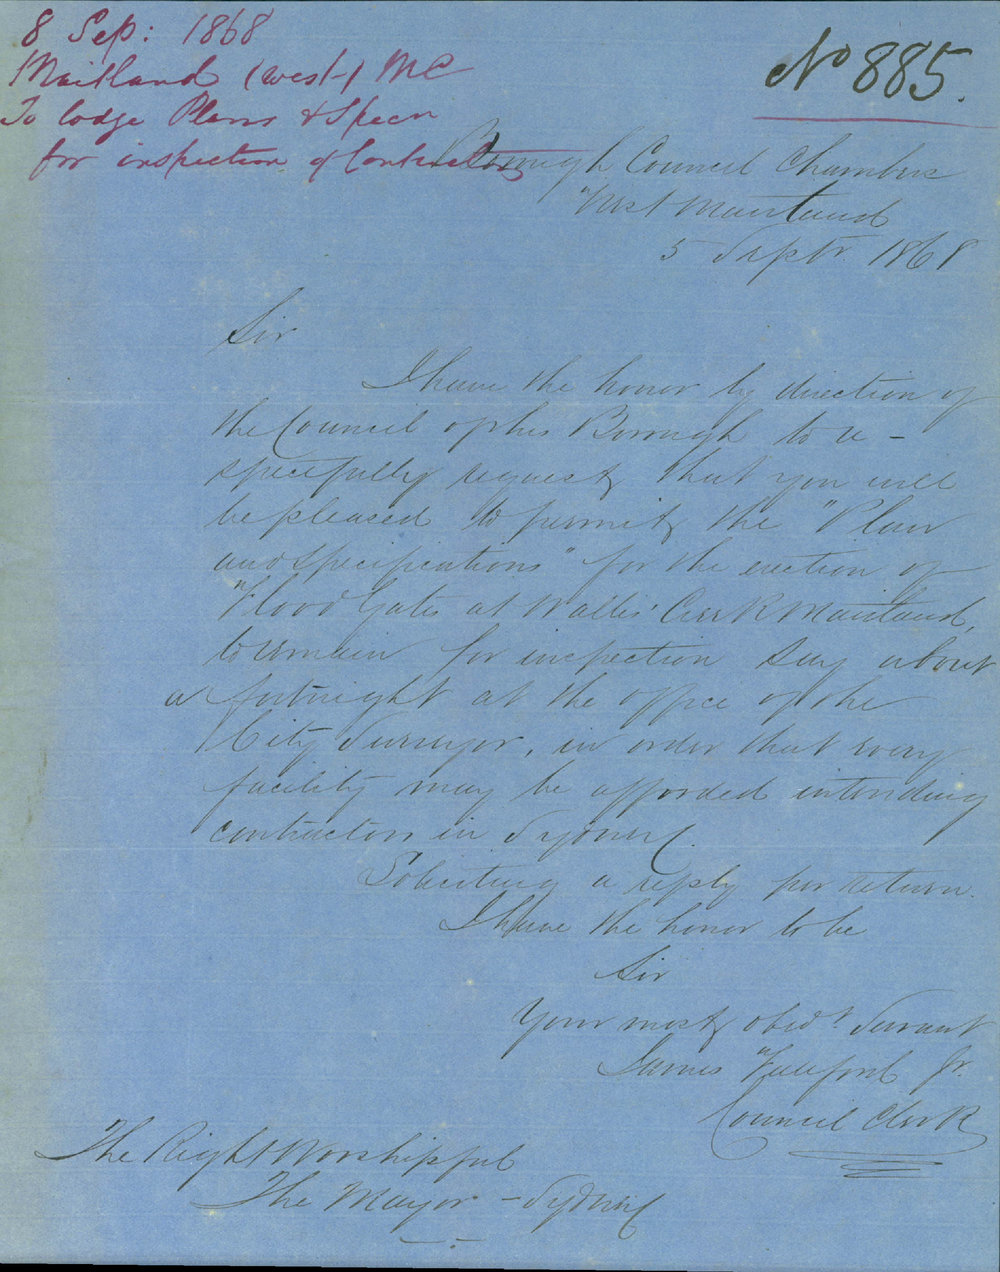 8 Sep: 1868
Maitland (West) MC
To lodge Plans & Specn
for inspection of Contractors
No 885.
Borough Council Chambers
West Maitland
5 Septr. 1868
Sir
I have the honor by direction of
the Council of this Borough to re-
spectfully request that you will
be pleased to permit the "Plan
and Specifications" for the erection of
Flood Gates at Wallis' Creek Maitland,
to remain for inspection say about
a fortnight at the office of the
City Surveyor, in order that every
facility may be afforded intending
contractors in Sydney.
Soliciting a reply per return.
I have the honor to be
Sir
Your most obedt Servant
James Fulford Jr.
Council Clerk
The Right Worshipful
The Mayor - Sydney